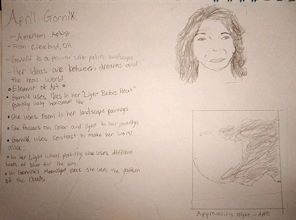 April Gornik
- American Artist
- From Cleveland, OH
- Gornik is a painter who paints landscapes
- Her ideas are between dreams and
the real world.
• Element of Art •
• Gornik uses lines in her "Light Before Heat"
painting very horizontal line
• She uses form in her landscape paintings
• She focuses on color and light in her paintings
• Gornik uses contrast to make her work
• In her Light when painting she uses different
of blue for the
• In Gornik's Moonlight piece she uses the pattern
of the clouds.
Approaching Storm